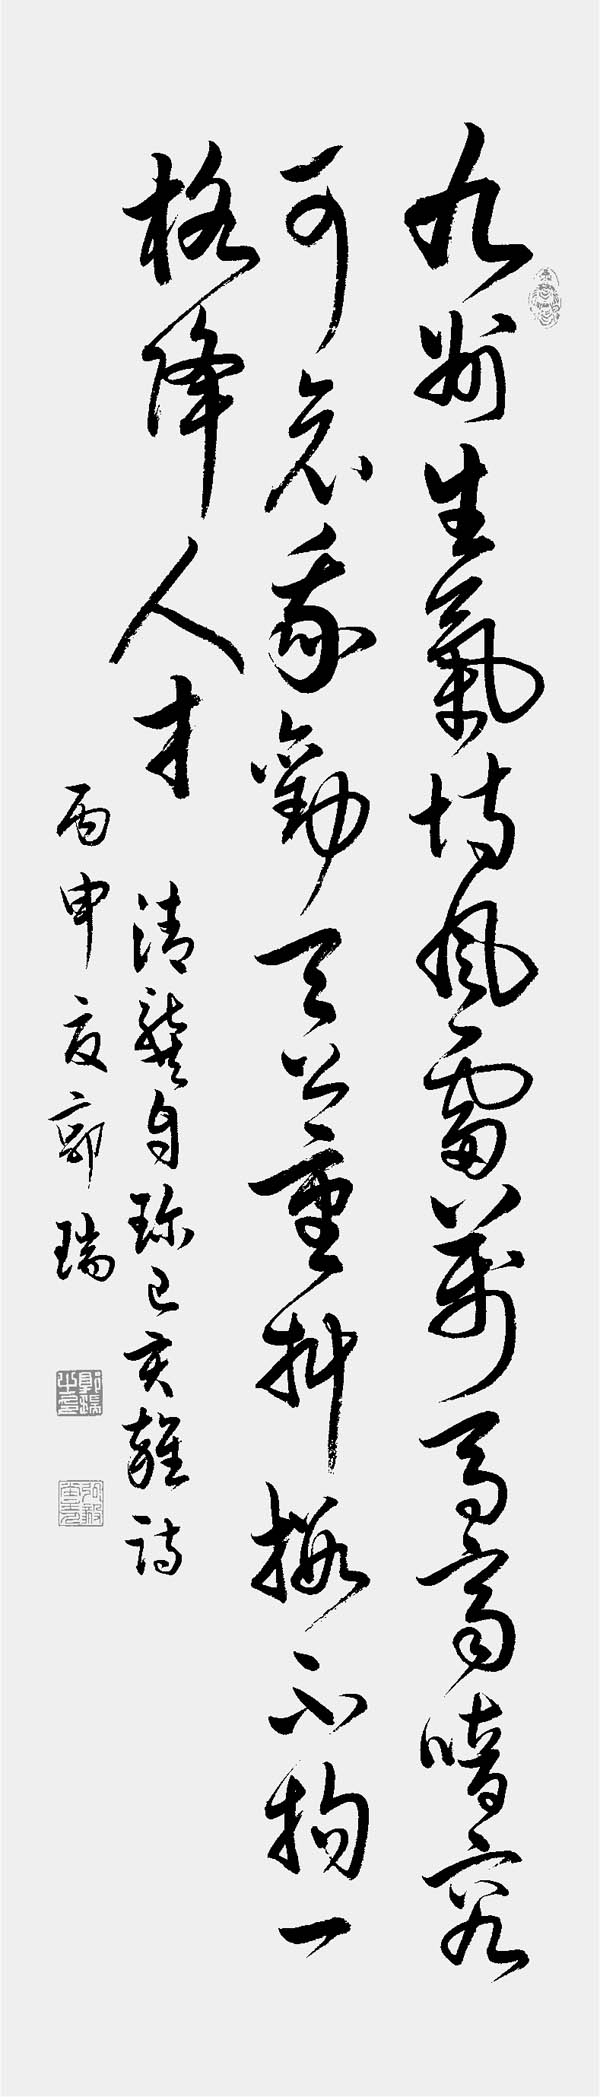 九州生氣恃風雷萬馬齊喑究
可哀我勸天公重抖擻不拘一
格降人才
清龔自珍己亥雜詩
丙申夏郭瑞